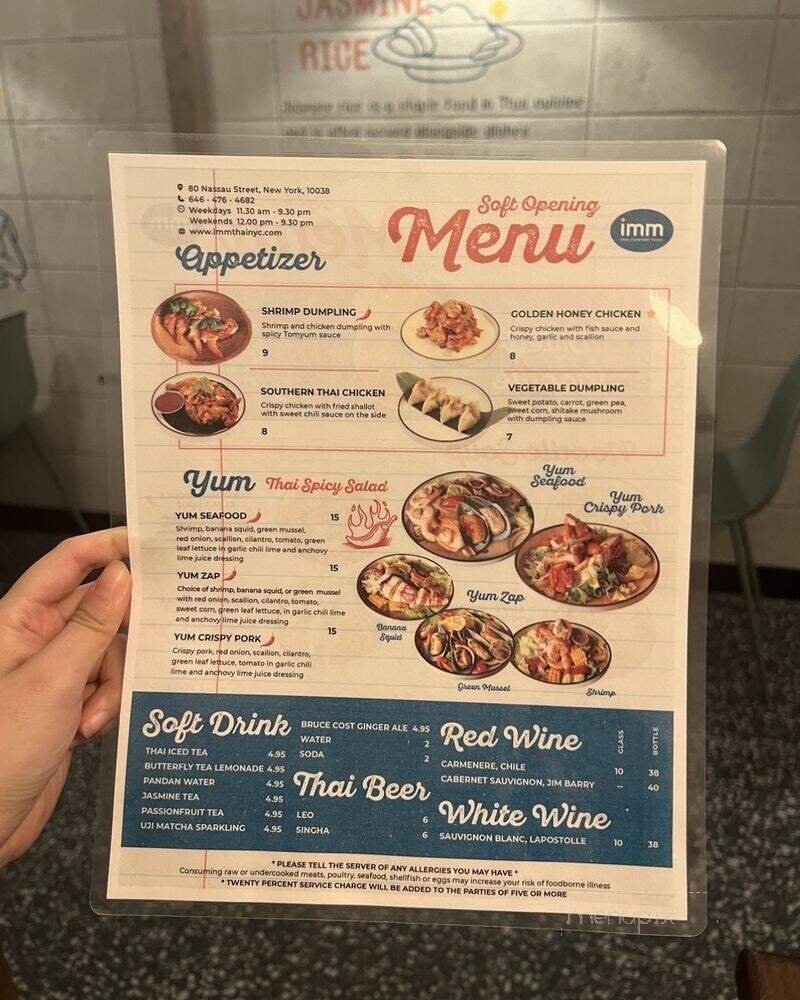 JASMINE
RICE
Jasmine rice is a staple food in Thai cuisine
and is often served alongside dishes
80 Nassau Street, New York, 10038
646 - 476 - 4682
Weekdays 11.30 am - 9.30 pm
Weekends 12.00 pm - 9.30 pm
www.immthainyc.com
Soft Opening
Menu
imm
THAI COMFORT FOOD
Appetizer
SHRIMP DUMPLING
Shrimp and chicken dumpling with
spicy Tomyum sauce
9
GOLDEN HONEY CHICKEN
Crispy chicken with fish sauce and
honey, garlic and scallion
8
SOUTHERN THAI CHICKEN
Crispy chicken with fried shallot
with sweet chili sauce on the side
8
VEGETABLE DUMPLING
Sweet potato, carrot, green pea,
sweet corn, shitake mushroom
with dumpling sauce
7
Yum Thai Spicy Salad
YUM SEAFOOD 15
Shrimp, banana squid, green mussel,
red onion, scallion, cilantro, tomato, green
leaf lettuce in garlic chili lime and anchovy
lime juice dressing
YUM ZAP 15
Choice of shrimp, banana squid, or green mussel
with red onion, scallion, cilantro, tomato,
sweet corn, green leaf lettuce, in garlic chili lime
and anchovy lime juice dressing
YUM CRISPY PORK 15
Crispy pork, red onion, scallion, cilantro,
green leaf lettuce, tomato in garlic chili
lime and anchovy lime juice dressing
Yum
Seafood
Yum
Crispy Pork
Yum Zap
Banana
Squid
Green Mussel
Shrimp
Soft Drink
THAI ICED TEA 4.95
BUTTERFLY TEA LEMONADE 4.95
PANDAN WATER 4.95
JASMINE TEA 4.95
PASSIONFRUIT TEA 4.95
UJI MATCHA SPARKLING 4.95
BRUCE COST GINGER ALE 4.95
WATER 2
SODA 2
Thai Beer
LEO 6
SINGHA 6
Red Wine GLASS BOTTLE
CARMENERE, CHILE 10 38
CABERNET SAUVIGNON, JIM BARRY -- 40
White Wine
SAUVIGNON BLANC, LAPOSTOLLE 10 38
* PLEASE TELL THE SERVER OF ANY ALLERGIES YOU MAY HAVE *
Consuming raw or undercooked meats, poultry, seafood, shellfish or eggs may increase your risk of foodborne illness
* TWENTY PERCENT SERVICE CHARGE WILL BE ADDED TO THE PARTIES OF FIVE OR MORE
menupix